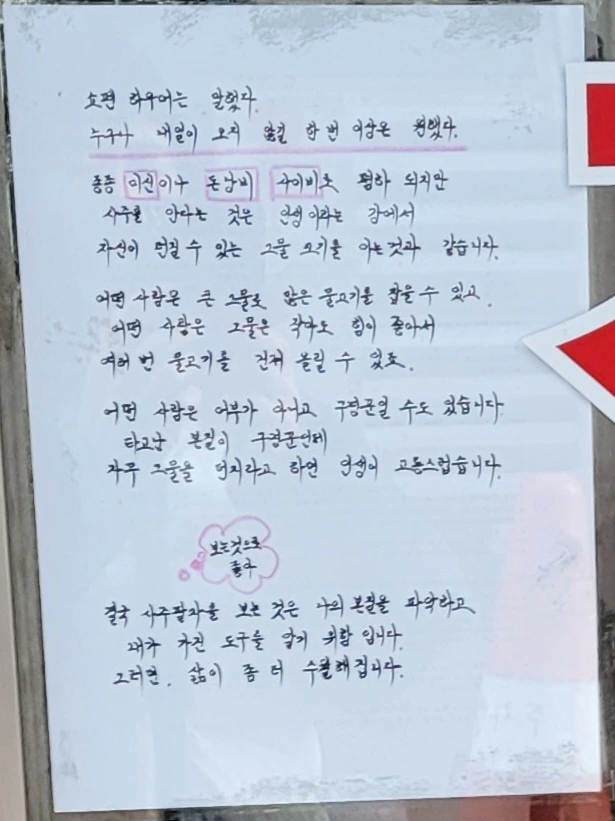 쇼펜 하우어는 말했다.
누구나 내일이 오지 않길 한 번 이상은 원했다.
종종 미신이나 돈낭비 사이비로 폄하 되지만
사주를 안다는 것은 인생이라는 강에서
자신이 던질 수 있는 그물 크기를 아는것과 같습니다.
어떤 사람은 큰 그물로 많은 물고기를 잡을 수 있고,
어떤 사람은 그물은 작아도 힘이 좋아서
여러 번 물고기를 건져 올릴 수 있죠.
어떤 사람은 어부가 아니고 구경꾼일 수도 있습니다.
타고난 본질이 구경꾼인데
자꾸 그물을 던지라고 하면 인생이 고통스럽습니다.
보는것으로
좋아
결국 사주팔자를 보는 것은 나의 본질을 파악하고
내가 가진 도구를 알기 위함 입니다.
그러면, 삶이 좀 더 수월해집니다.